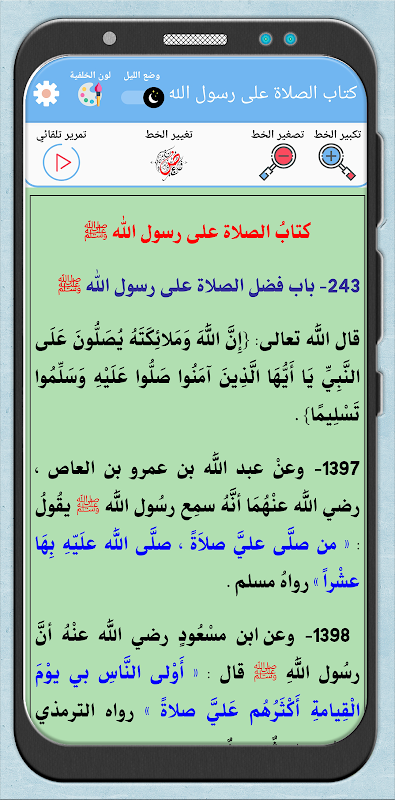 وضع الليل
لون الخلفية
كتاب الصلاة على رسول الله
تكبير الخط
تصغير الخط
تغيير الخط
تمرير تلقائي
كتابُ الصلاة على رسول الله ﷺ
243- باب فضل الصلاة على رسول الله ﷺ
قال الله تعالى: {إِنَّ اللَّهَ وَمَلائِكَتَهُ يُصَلُّونَ عَلَى
النَّبِيِّ يَا أَيُّهَا الَّذِينَ آمَنُوا صَلُّوا عَلَيْهِ وَسَلِّمُوا
تَسْلِيمًا} .
1397- وعنْ عبد الله بن عمرو بن العاص ،
رضي الله عنْهُمَا أنَّهُ سمِع رسُول الله ﷺ يقُولُ
: « من صلَّى عليَّ صلاَةً ، صلَّى الله علَيّهِ بِهَا
عشْراً » رواهُ مسلم .
1398- وعن ابن مسْعُودٍ رضي الله عنْهُ أنَّ
رسُول اللَّهِ ﷺ قال : « أَوْلى النَّاسِ بي يوْمَ
الْقِيامةِ أَكْثَرُهُم عَليَّ صلاةً » رواه الترمذي